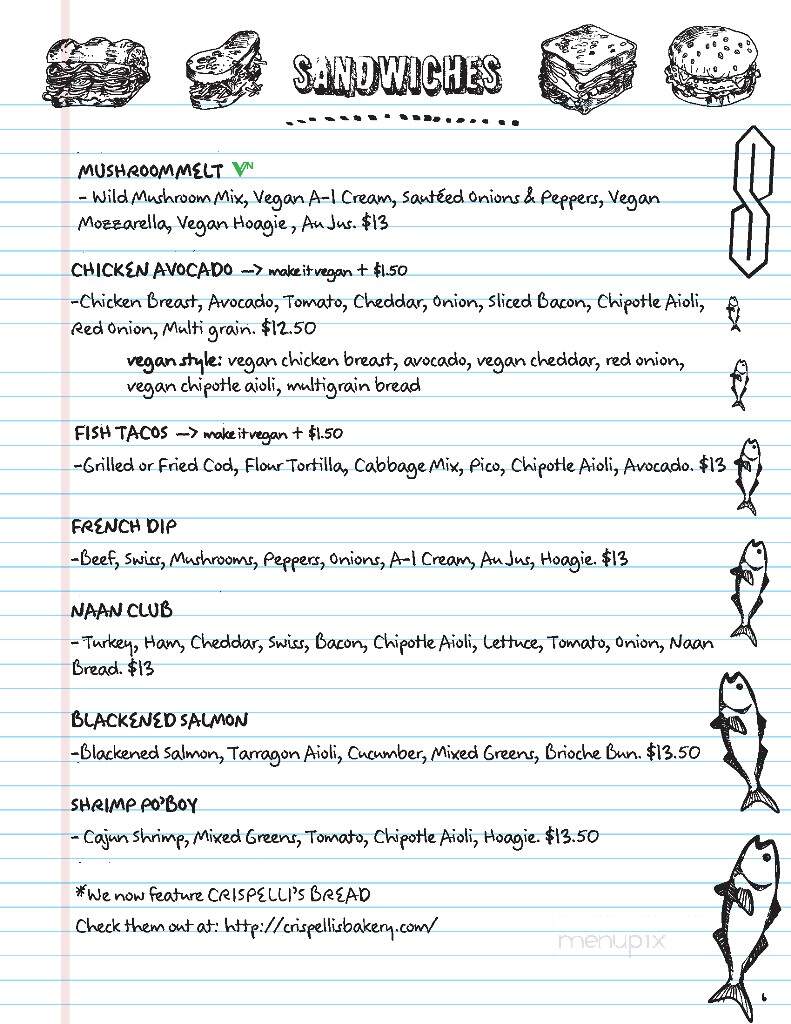 SANDWICHES
MUSHROOM MELT VN
- Wild Mushroom Mix, Vegan A-1 Cream, Sautéed Onions & Peppers, Vegan
Mozzarella, Vegan Hoagie, Au Jus. $13
CHICKEN AVOCADO --> make it vegan + $1.50
-Chicken Breast, Avocado, Tomato, Cheddar, Onion, Sliced Bacon, Chipotle Aioli,
Red Onion, Multi grain. $12.50
vegan style: vegan chicken breast, avocado, vegan cheddar, red onion,
vegan chipotle aioli, multigrain bread
FISH TACOS --> make it vegan + $1.50
-Grilled or Fried Cod, Flour Tortilla, Cabbage Mix, Pico, Chipotle Aioli, Avocado. $13
FRENCH DIP
-Beef, Swiss, Mushrooms, Peppers, Onions, A-1 Cream, Au Jus, Hoagie. $13
NAAN CLUB
- Turkey, Ham, Cheddar, Swiss, Bacon, Chipotle Aioli, Lettuce, Tomato, Onion, Naan
Bread. $13
BLACKENED SALMON
-Blackened Salmon, Tarragon Aioli, Cucumber, Mixed Greens, Brioche Bun. $13.50
SHRIMP PO'BOY
- Cajun Shrimp, Mixed Greens, Tomato, Chipotle Aioli, Hoagie. $13.50
*We now feature CRISPELLI'S BREAD
Check them out at: http://crispellisbakery.com/
menupix
6